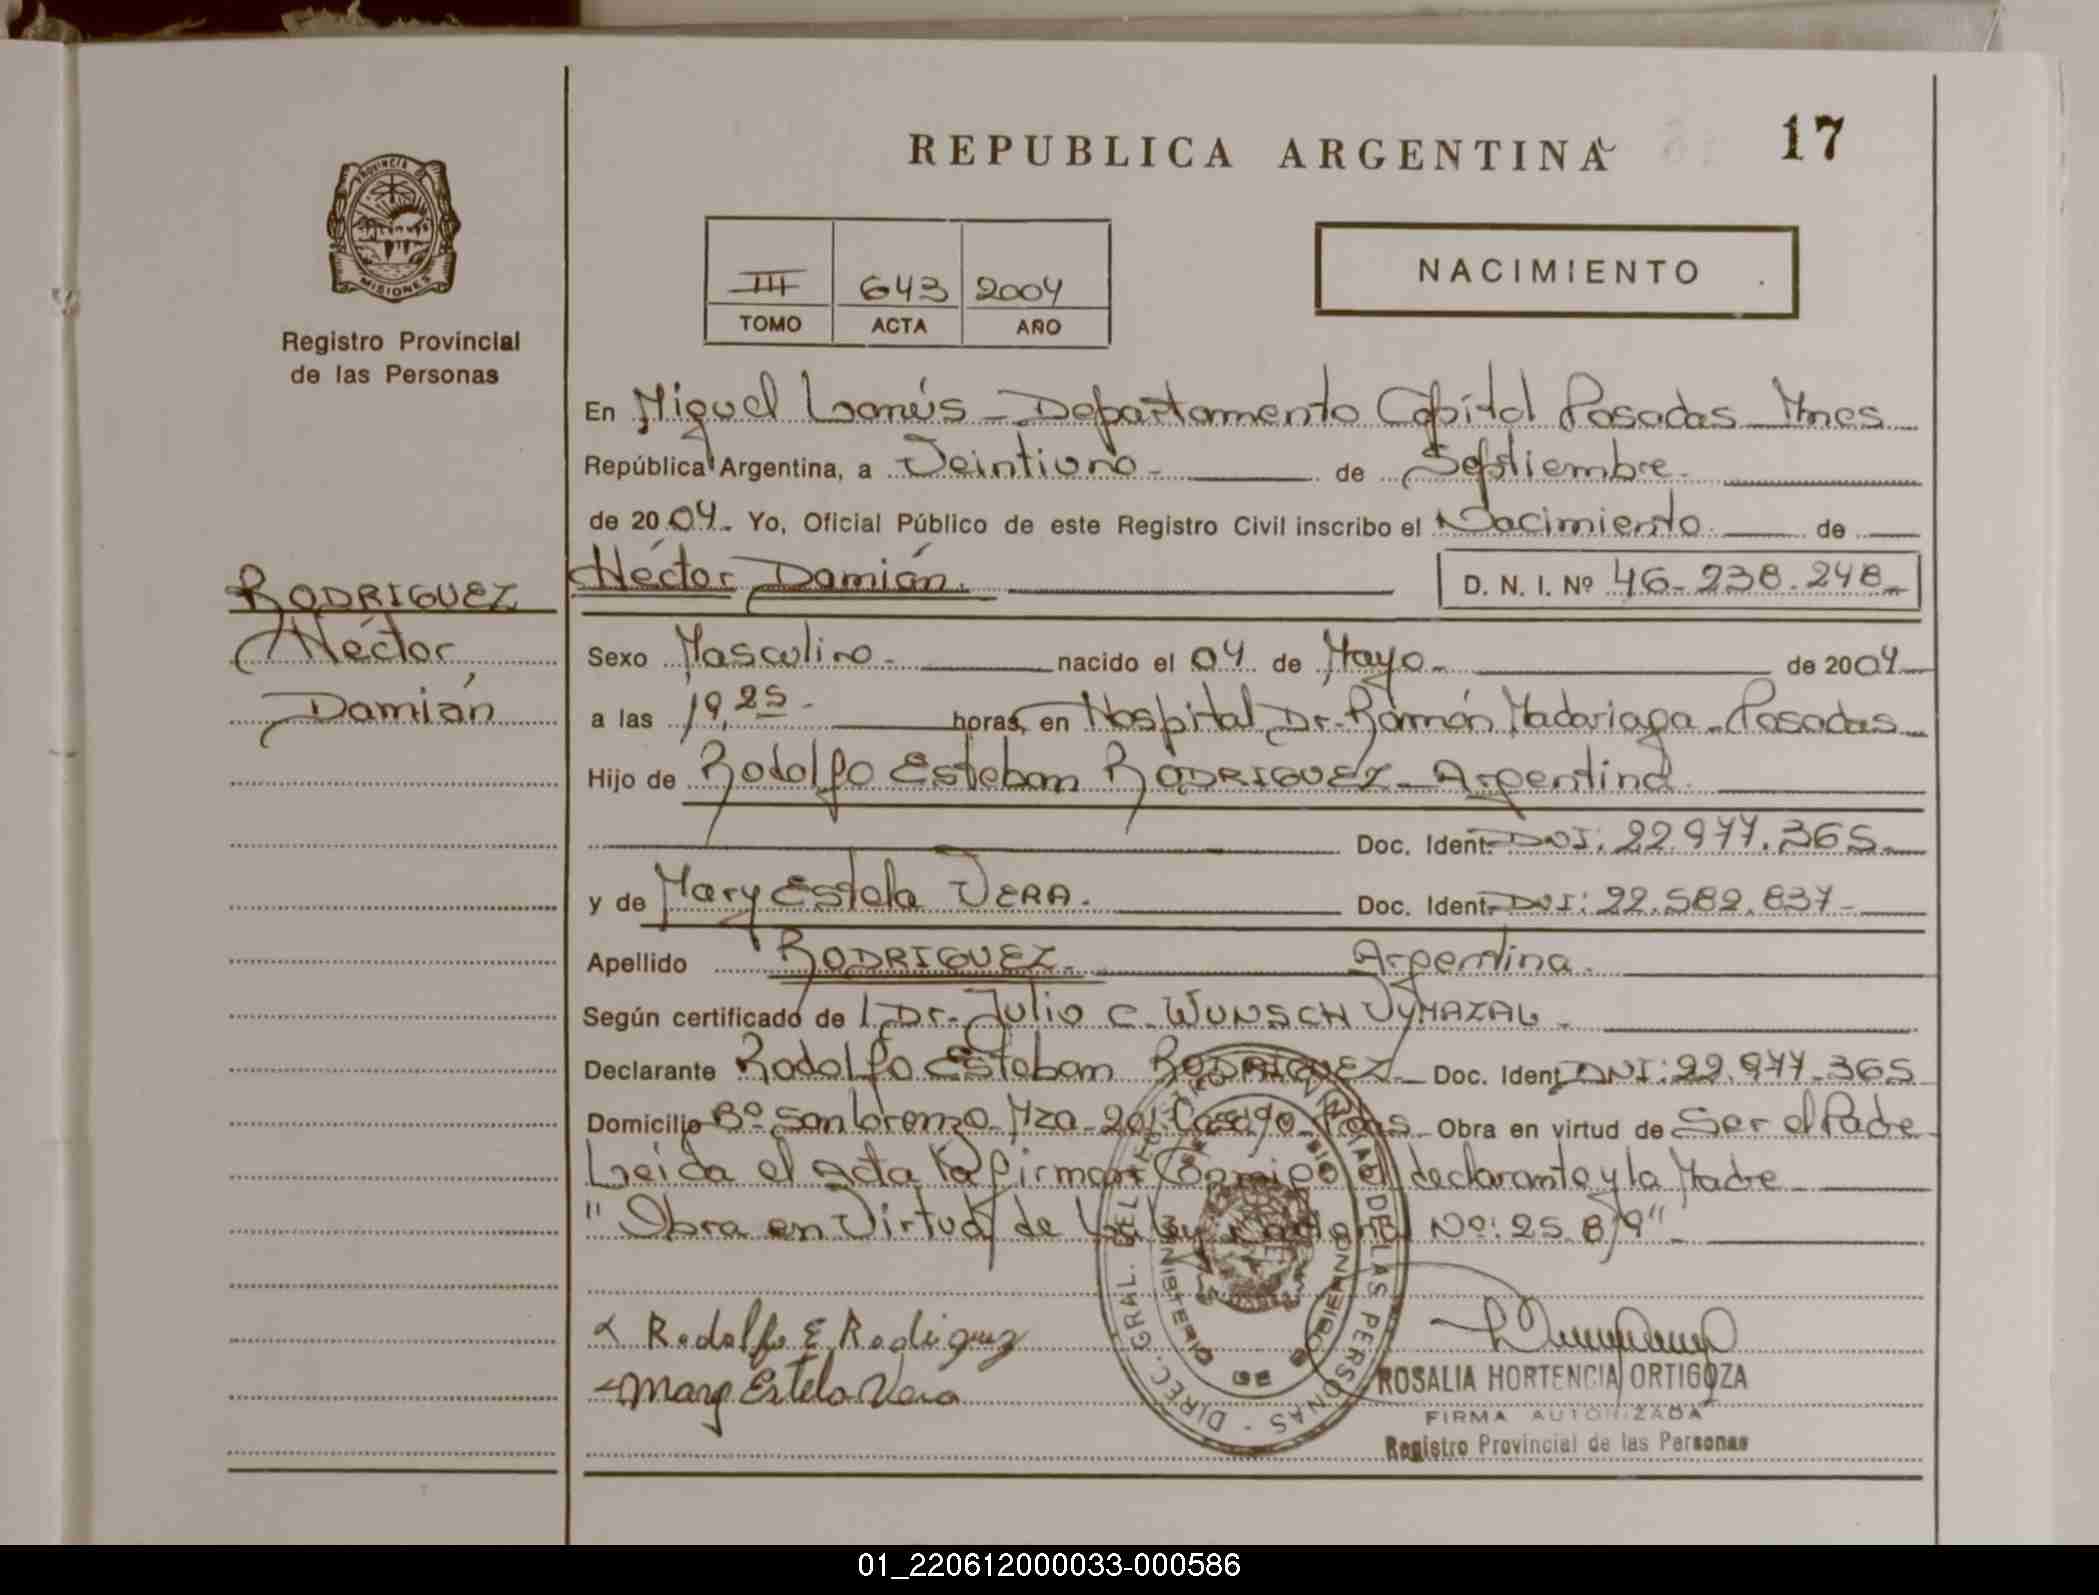 REPUBLICA ARGENTINA
17
PROVINCIA DE
MISIONES
Registro Provincial
de las Personas
III 643 2004
TOMO ACTA AÑO
NACIMIENTO
En Miguel Lanús - Departamento Capital Posadas Mnes
República Argentina, a Veintiuno - de Septiembre -
de 2004. Yo, Oficial Público de este Registro Civil inscribo el Nacimiento de
Héctor Damián. D. N. I. Nº 46-238.248-
RODRIGUEZ
Héctor
Damián
Sexo Masculino - nacido el 04 de Mayo - de 2004
a las 19,25 - horas, en Hospital Dr. Ramón Madariaga - Posadas
Hijo de Rodolfo Esteban RODRIGUEZ - Argentina
Doc. Ident. DNI: 22.977.365-
y de Mary Estela VERA. Doc. Ident. DNI: 22.582.837-
Apellido RODRIGUEZ - Argentina.
Según certificado de Dr. Julio C. WUNSCH VYMAZAL -
Declarante Rodolfo Esteban RODRIGUEZ - Doc. Ident. DNI: 22.977.365
Domicilio Bº San Lorenzo Mza 201 Casa Pdas Obra en virtud de Ser el Padre
Leída el Acta la firman Conmigo el declarante y la Madre
"Obra en Virtud de La Ley Nacional Nº: 25.819"
Rodolfo E Rodriguez
Mary Estela Vera
DIREC. GRAL. DEL REGISTRO PROVINCIAL DE LAS PERSONAS
MINISTERIO DE GOBIERNO
ROSALIA HORTENCIA ORTIGOZA
FIRMA AUTORIZADA
Registro Provincial de las Personas
01_220612000033-000586